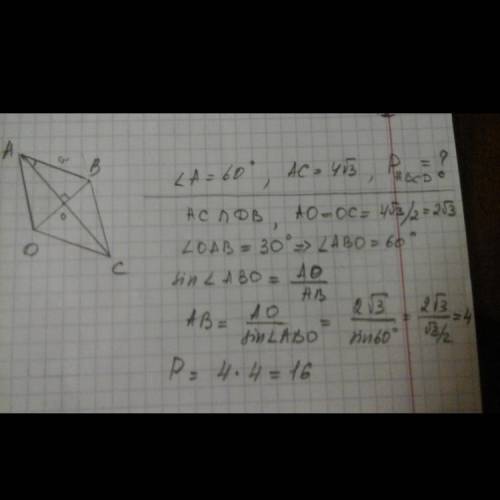 A
a
B
O
O
C
∠A = 60°, AC = 4√3, P_ABCD = ?
AC ∩ DB, AO = OC = 4√3/2 = 2√3
∠OAB = 30° => ∠ABO = 60°
sin∠ABO = AO/AB
AB = AO/sin∠ABO = 2√3/sin60° = 2√3/√3/2 = 4
P = 4 · 4 = 16